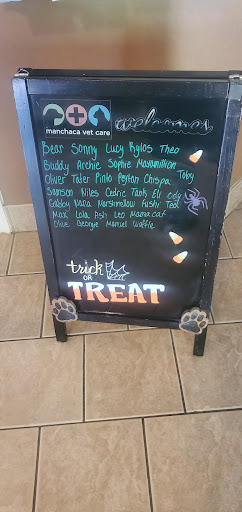 manchaca vet care
welcomes
Bear Sonny Lucy Kylos Theo
Buddy Archie Sophie Maxamillion
Oliver Tater Pinto Peyton Chispa Toby
Samson Niles Cedric Tank Eli Cody
Gabby Nara Marshmellow Fushi Ted
Max Lola Ash Leo Mamacat
Olive Georgie Manuel Waffle
trick
OR
TREAT